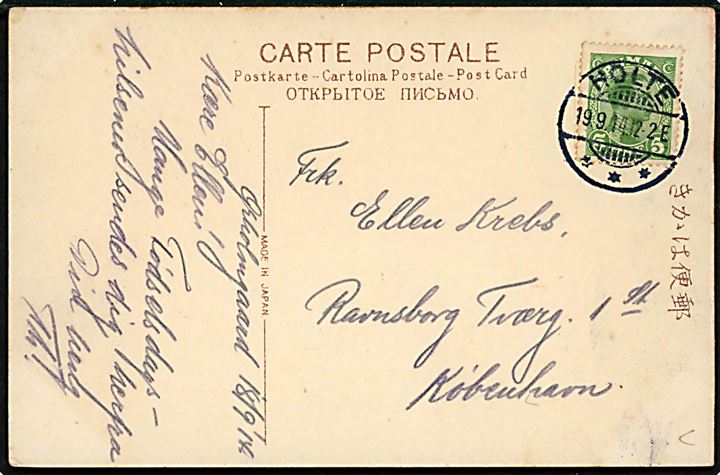 CARTE POSTALE
Postkarte – Cartolina Postale – Post Card
ОТКРЫТОЕ ПИСЬМО.
HOLTE
19.9.14.12-2E
5
5
きかは便郵
MADE IN JAPAN.
Frk.
Ellen Krebs,
Ravnsborg Tværg. 1 St
København.
18/9 14
Kære Ellen!
Mange Födselsdags-
hilsener sendes dig herfra
Din heng